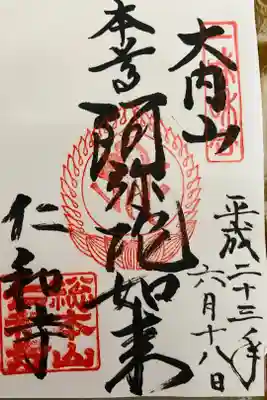 大内山
平成二十三年
六月十八日
本尊
阿弥陀如来
仁和寺
総本山